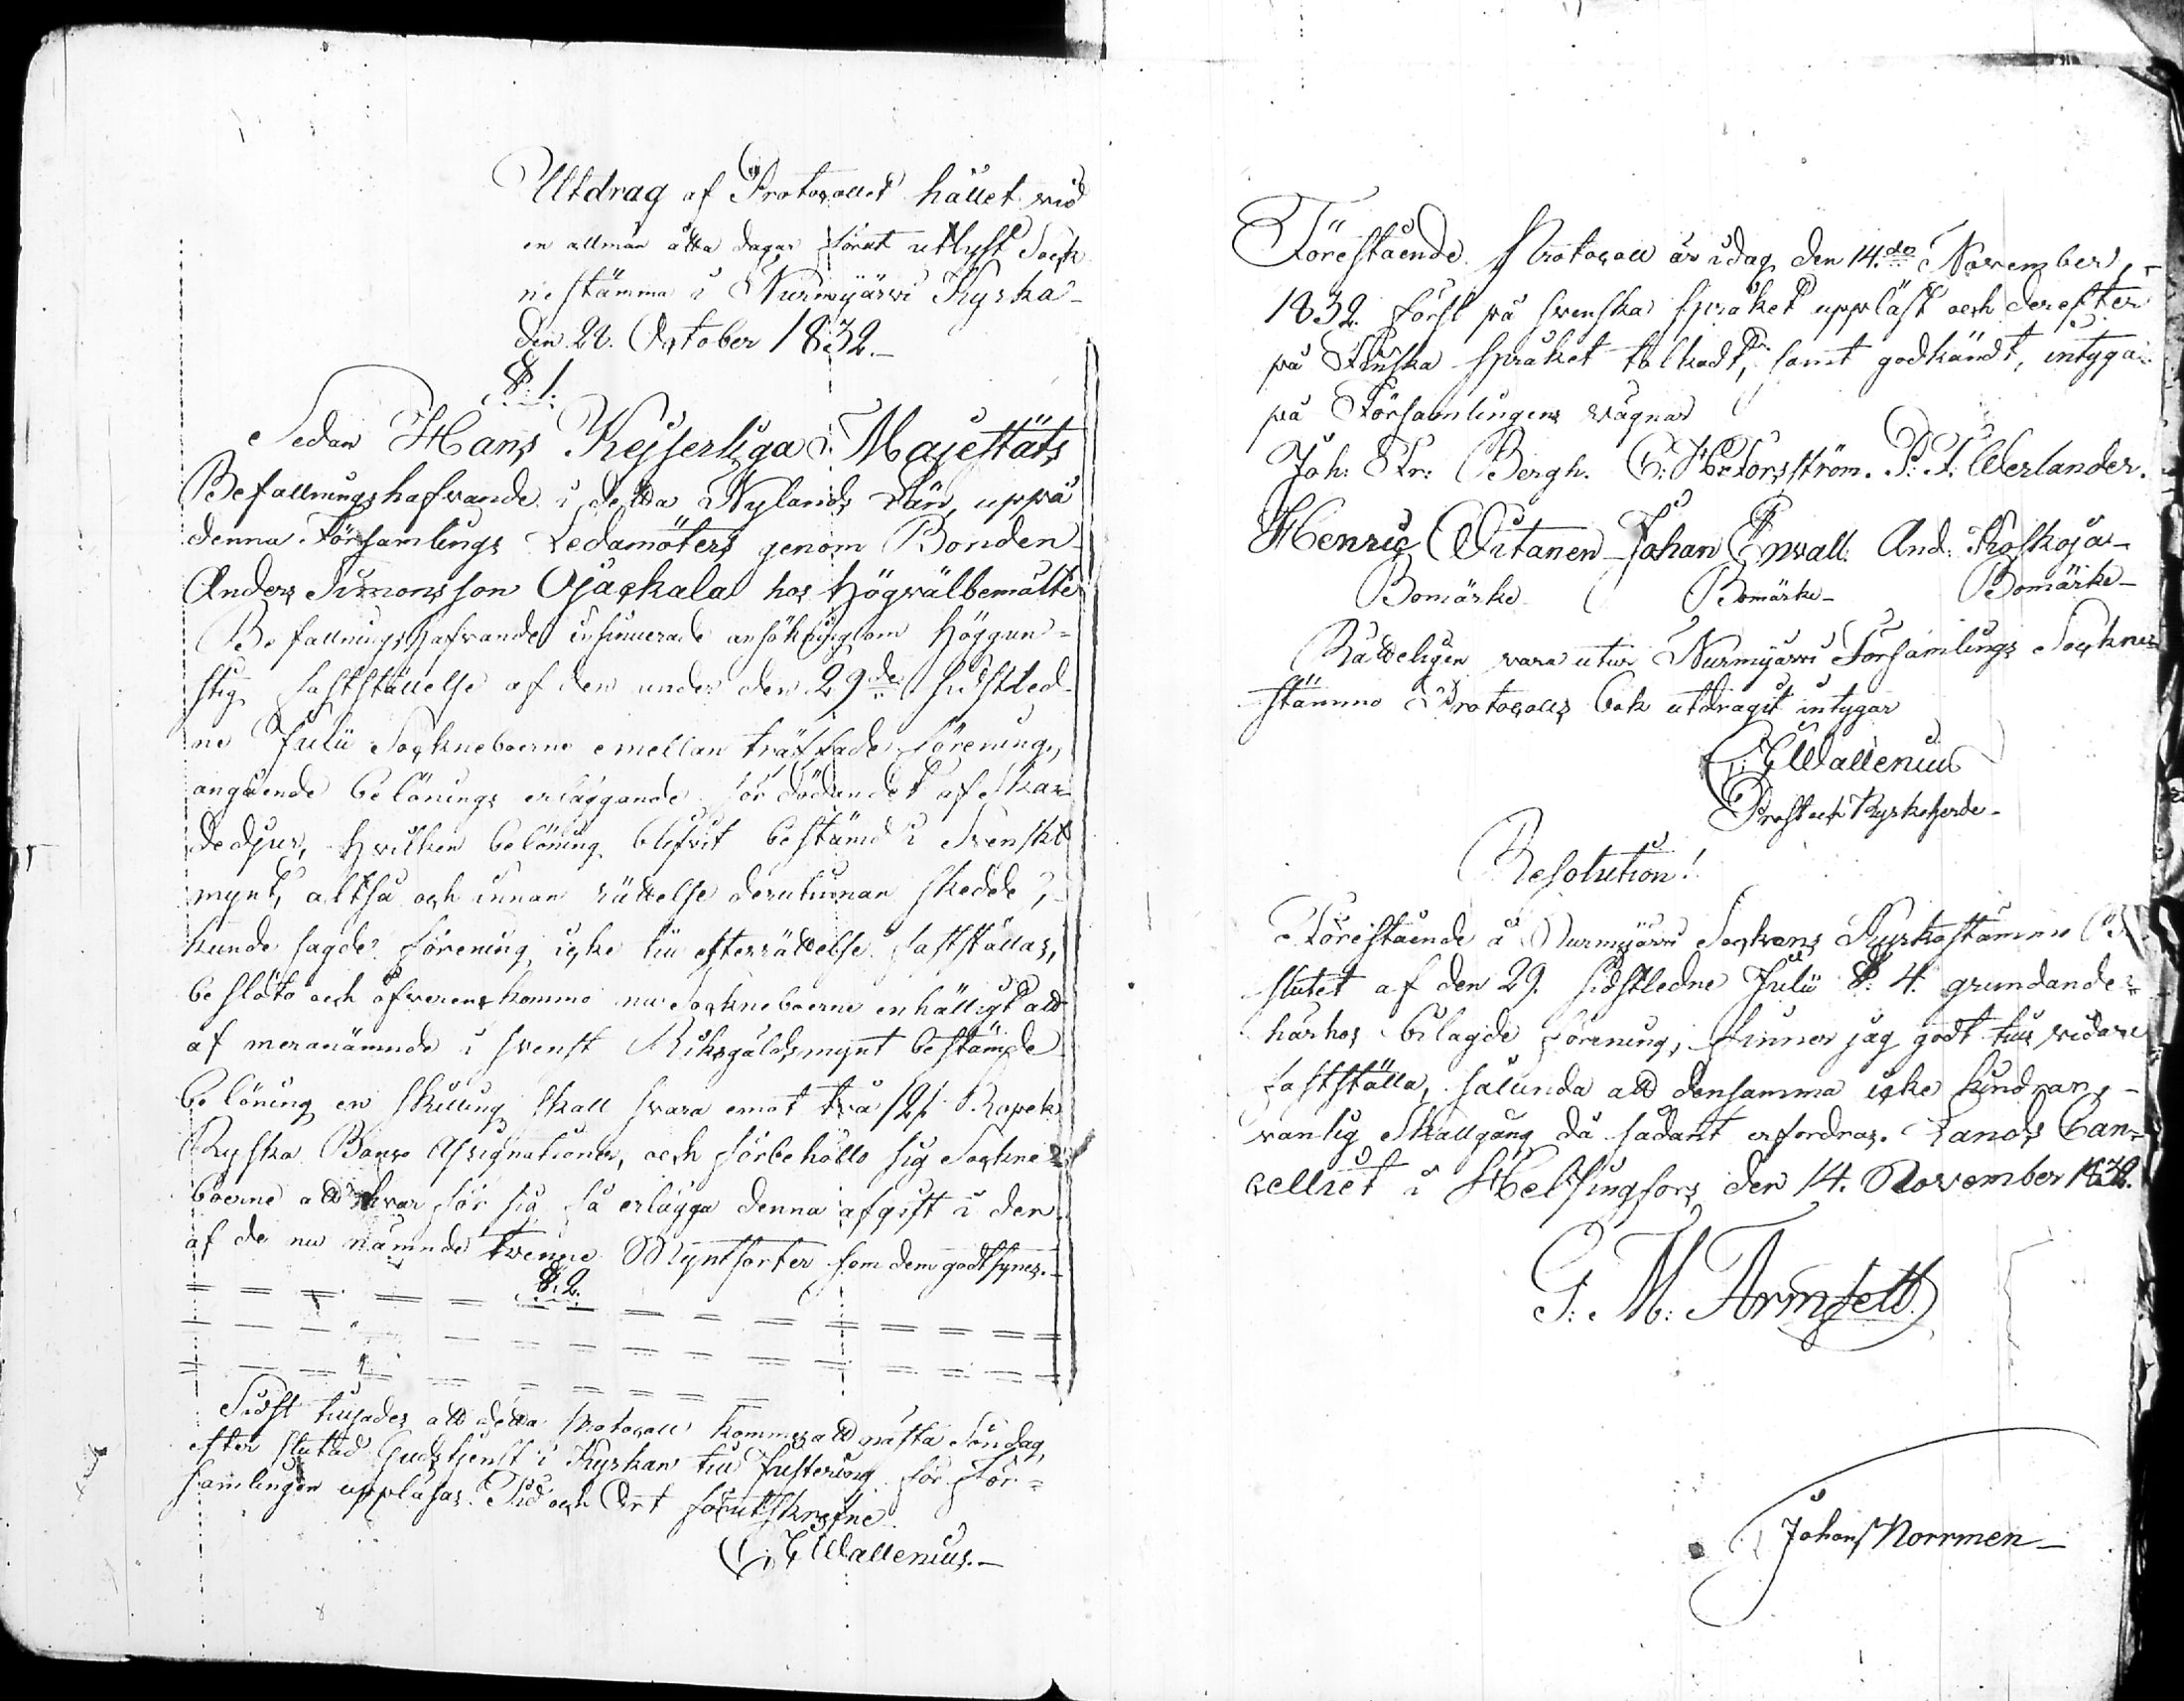 Utdrag af Protocollet hållet vid
en allmän åtta dagar förut utlyst Sock
nestämma i Nurmijärvi Kyrka
den 28. October 1832.
§. 1.
Sedan Hans Kejserliga Majestäts
Befallningshafvande i detta Nylands Län, uppå
denna Församlings Ledamöters genom Bonden
Anders Simonsson Ojackala hos Högvälbemälte
Befallningshafvande insinuerade ansökning om Höggun=
stig fastställelse af den under den 29de sistled-
ne Julii Sockneboerne emellan träffade förening,
angående belönings erläggande för dödandet af Ska-
dedjur, hvilken belöning blifvit bestämd i Svenskt
mynt, altså och innan rättelse derutinnan skedde,
kunde sagde förening icke till efterrättelse fastställas,
beslöto och öfverenskommo nu Sockneboerne enhälligt att
af meranämnde i svenskt Riksgäldsmynt bestämde
belöning en skilling skall svara emot två /2/. Kopek
Ryska Banco Assignationer, och förbehöllo sig Sockne
boerne att hvar för sig få erlägga denna afgift i den
af de nu nämnde tvenne Myntsorter som dem godt synes.
§. 2.
Sidst tillsades att detta Protocoll kommer att nästa Söndag,
efter slutad Gudstjenst i Kyrkan till justering för För=
samlingen uppläsas. Tid och Ort förutskrefne
Wallenius.
Förestående Protocoll är i dag den 14.de November,
1832. först på svenska språket uppläst och derefter
på Finska språket tolkadt, samt godkändt, intyga
på Församlingens vägnar
Joh: Fr: Bergh. C: Hectorsström. P: J: Werlander.
Henric Oitanen Johan Envall. And: Koskoja
Bomärke Bomärke Bomärke
Rätteligen vara utur Nurmijärvi Församlings Sockne
stämmo Protocolls bok utdragit intygar
Wallenius
Prost och Kyrkoherde
Resolution!
Förestående å Nurmijärvi Sockens Kyrkostämma Be
slutet af den 29. sistledne Julii §. 4. grundande
härhos bilagde förening, finner jag godt till vidare
fastställa, sålunda att densamma icke hindrar,
vanlig Skallgång då sådant erfordras. Lands Can-
celliet i Helsingfors den 14. November 1832.
G. M. Armfelt
Johan Norrmen